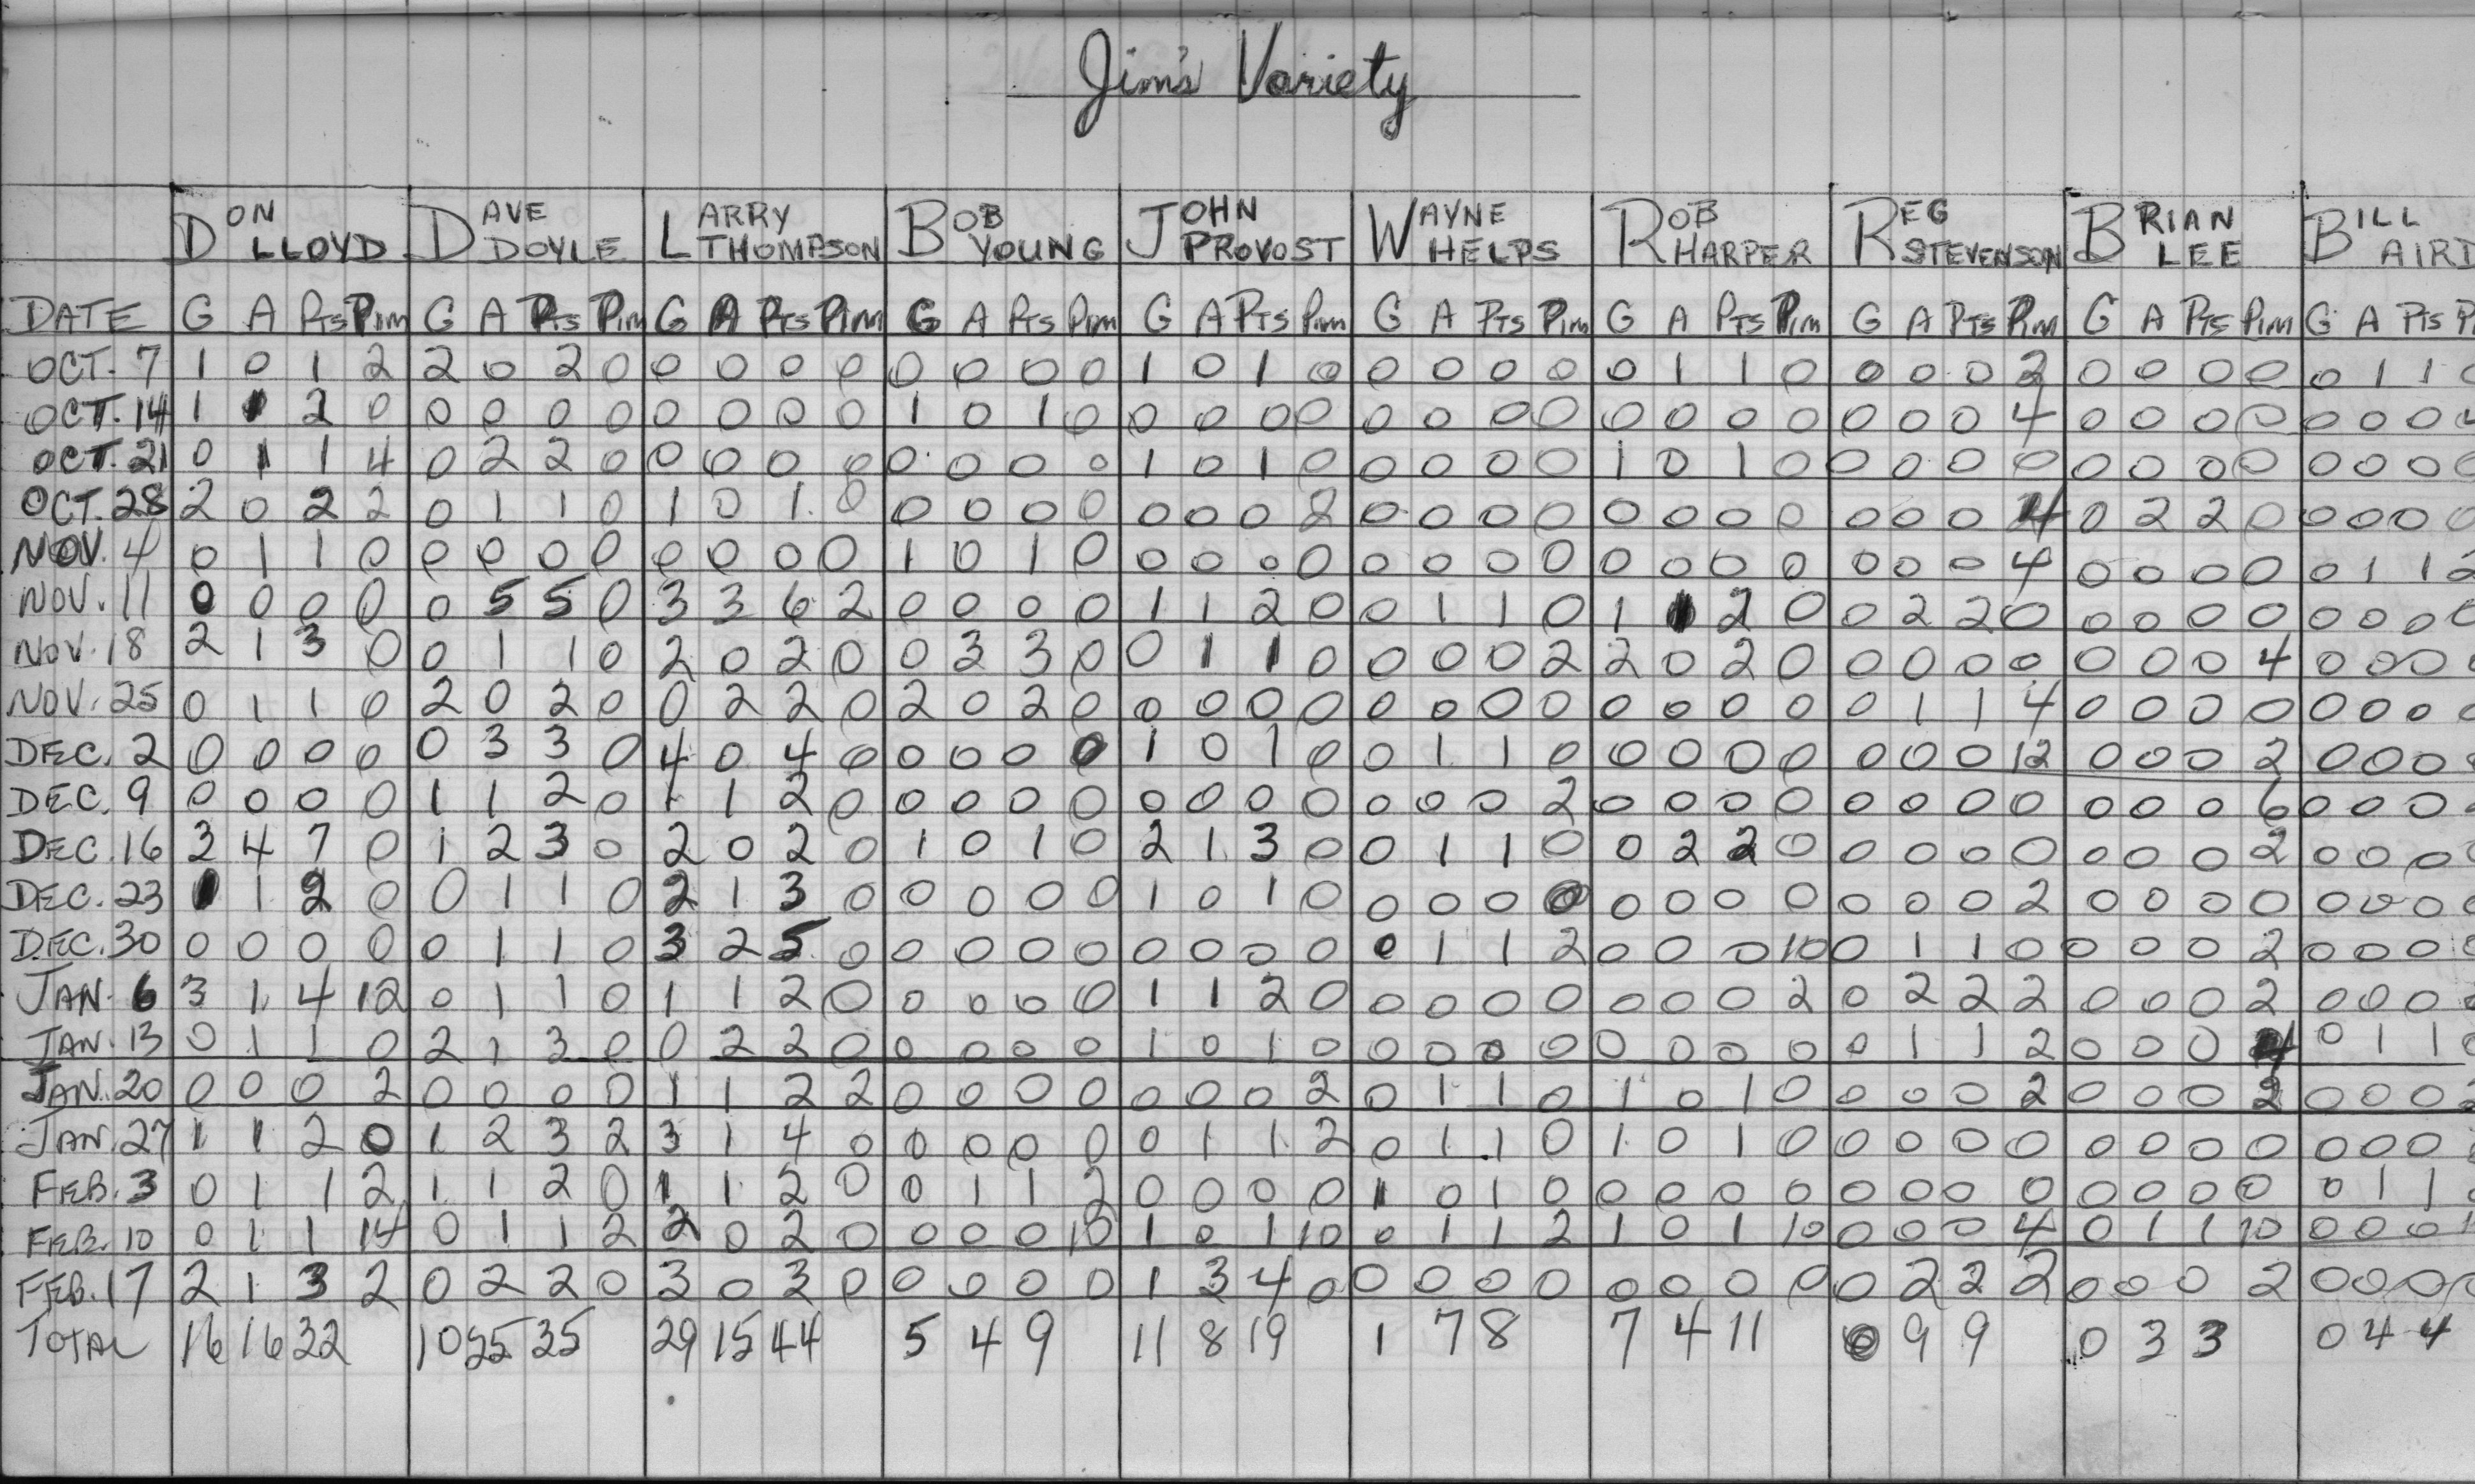 Jim's Variety
DON LLOYD DAVE DOYLE LARRY THOMPSON BOB YOUNG JOHN PROVOST WAYNE HELPS ROB HARPER REG STEVENSON BRIAN LEE BILL AIRD
DATE G A PTS PIM G A PTS PIM G A PTS PIM G A PTS PIM G A PTS PIM G A PTS PIM G A PTS PIM G A PTS PIM G A PTS PIM G A PTS P
OCT. 7 1 0 1 2 2 0 2 0 0 0 0 0 0 0 0 0 1 0 1 0 0 0 0 0 0 1 1 0 0 0 0 2 0 0 0 0 0 1 1 0
OCT. 14 1 1 2 0 0 0 0 0 0 0 0 0 1 0 1 0 0 0 0 0 0 0 0 0 0 0 0 0 0 0 0 4 0 0 0 0 0 0 0
OCT. 21 0 1 1 4 0 2 2 0 0 0 0 0 0 0 0 0 1 0 1 0 0 0 0 0 1 0 1 0 0 0 0 0 0 0 0 0 0 0 0 0
OCT. 28 2 0 2 2 0 1 1 0 1 0 1 0 0 0 0 0 0 0 0 2 0 0 0 0 0 0 0 0 0 0 0 4 0 2 2 0 0 0 0 0
NOV. 4 0 1 1 0 0 0 0 0 0 0 0 0 1 0 1 0 0 0 0 0 0 0 0 0 0 0 0 0 0 0 0 4 0 0 0 0 0 1 1 2
NOV. 11 0 0 0 0 0 5 5 0 3 3 6 2 0 0 0 0 1 1 2 0 0 1 1 0 1 1 2 0 0 2 2 0 0 0 0 0 0 0 0 0
NOV. 18 2 1 3 0 0 1 1 0 2 0 2 0 0 3 3 0 0 1 1 0 0 0 0 2 2 0 2 0 0 0 0 0 0 0 0 4 0 0 0 0
NOV. 25 0 1 1 0 2 0 2 0 0 2 2 0 2 0 2 0 0 0 0 0 0 0 0 0 0 0 0 0 0 1 1 4 0 0 0 0 0 0 0 0
DEC. 2 0 0 0 0 0 3 3 0 4 0 4 0 0 0 0 0 1 0 1 0 0 1 1 0 0 0 0 0 0 0 0 12 0 0 0 2 0 0 0
DEC. 9 0 0 0 0 1 1 2 0 1 1 2 0 0 0 0 0 0 0 0 0 0 0 0 2 0 0 0 0 0 0 0 0 0 0 0 6 0 0 0
DEC. 16 3 4 7 0 1 2 3 0 2 0 2 0 1 0 1 0 2 1 3 0 0 1 1 0 0 2 2 0 0 0 0 0 0 0 0 2 0 0 0 0
DEC. 23 1 1 2 0 0 1 1 0 2 1 3 0 0 0 0 0 1 0 1 0 0 0 0 0 0 0 0 0 0 0 0 2 0 0 0 0 0 0 0 0
DEC. 30 0 0 0 0 0 1 1 0 3 2 5 0 0 0 0 0 0 0 0 0 0 1 1 2 0 0 0 10 0 1 1 0 0 0 0 2 0 0 0
JAN. 6 3 1 4 12 0 1 1 0 1 1 2 0 0 0 0 0 1 1 2 0 0 0 0 0 0 0 0 2 0 2 2 2 0 0 0 2 0 0 0
JAN. 13 0 1 1 0 2 1 3 0 0 2 2 0 0 0 0 0 1 0 1 0 0 0 0 0 0 0 0 0 0 1 1 2 0 0 0 4 0 1 1 0
JAN. 20 0 0 0 2 0 0 0 0 1 1 2 2 0 0 0 0 0 0 0 2 0 1 1 0 1 0 1 0 0 0 0 2 0 0 0 2 0 0 0 2
JAN. 27 1 1 2 0 1 2 3 2 3 1 4 0 0 0 0 0 0 1 1 2 0 1 1 0 1 0 1 0 0 0 0 0 0 0 0 0 0 0 0
FEB. 3 0 1 1 2 1 1 2 0 1 1 2 0 0 1 1 2 0 0 0 0 1 0 1 0 0 0 0 0 0 0 0 0 0 0 0 0 0 1 1
FEB. 10 0 1 1 14 0 1 1 2 2 0 2 0 0 0 0 10 1 0 1 10 0 1 1 2 1 0 1 10 0 0 0 4 0 1 1 10 0 0 0 1
FEB. 17 2 1 3 2 0 2 2 0 3 0 3 0 0 0 0 0 1 3 4 0 0 0 0 0 0 0 0 0 0 2 2 2 0 0 0 2 0 0 0 0
TOTAL 16 16 32 10 25 35 29 15 44 5 4 9 11 8 19 1 7 8 7 4 11 0 9 9 0 3 3 0 4 4